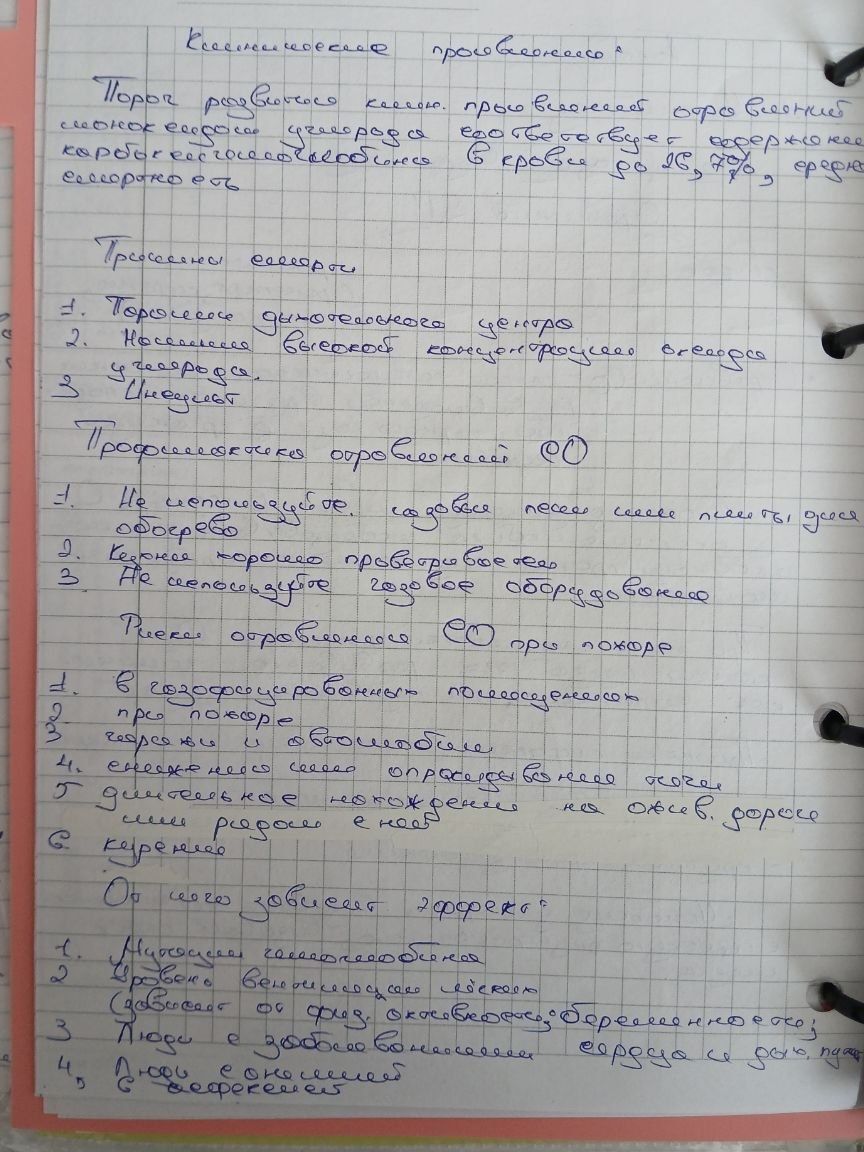 Клинические проявления:
Порог развития клин. проявлений отравлений
монооксидом углерода соответствует содержание
карбоксигемоглобина в крови до 26,7%, средн
смертность
Причины смерти
1. Паралич дыхательного центра
2. Наличие высокой концентрации оксида
углерода.
3 Инсульт
Профилактика отравлений CO
1. Не используйте газовые печи или плиты, для
обогрева
2. Кухня хорошо проветривается
3. Не используйте газовое оборудование
Риски отравления CO при пожаре
1. в газофицированных помещениях
2 при пожаре
3 гаражи и автомобили
4. снижении или опрокидывании
5 длительное нахождении на ожив. дороге
или рядом с ней
6. курение
От чего зависит эффект:
1. Мутации гемоглобина
2 Уровень вентиляции лёгких
(зависит от физ. активности; беременности;
3 Люди с заболеваниями сердца и дых. пут
4. Люди с анемией
5